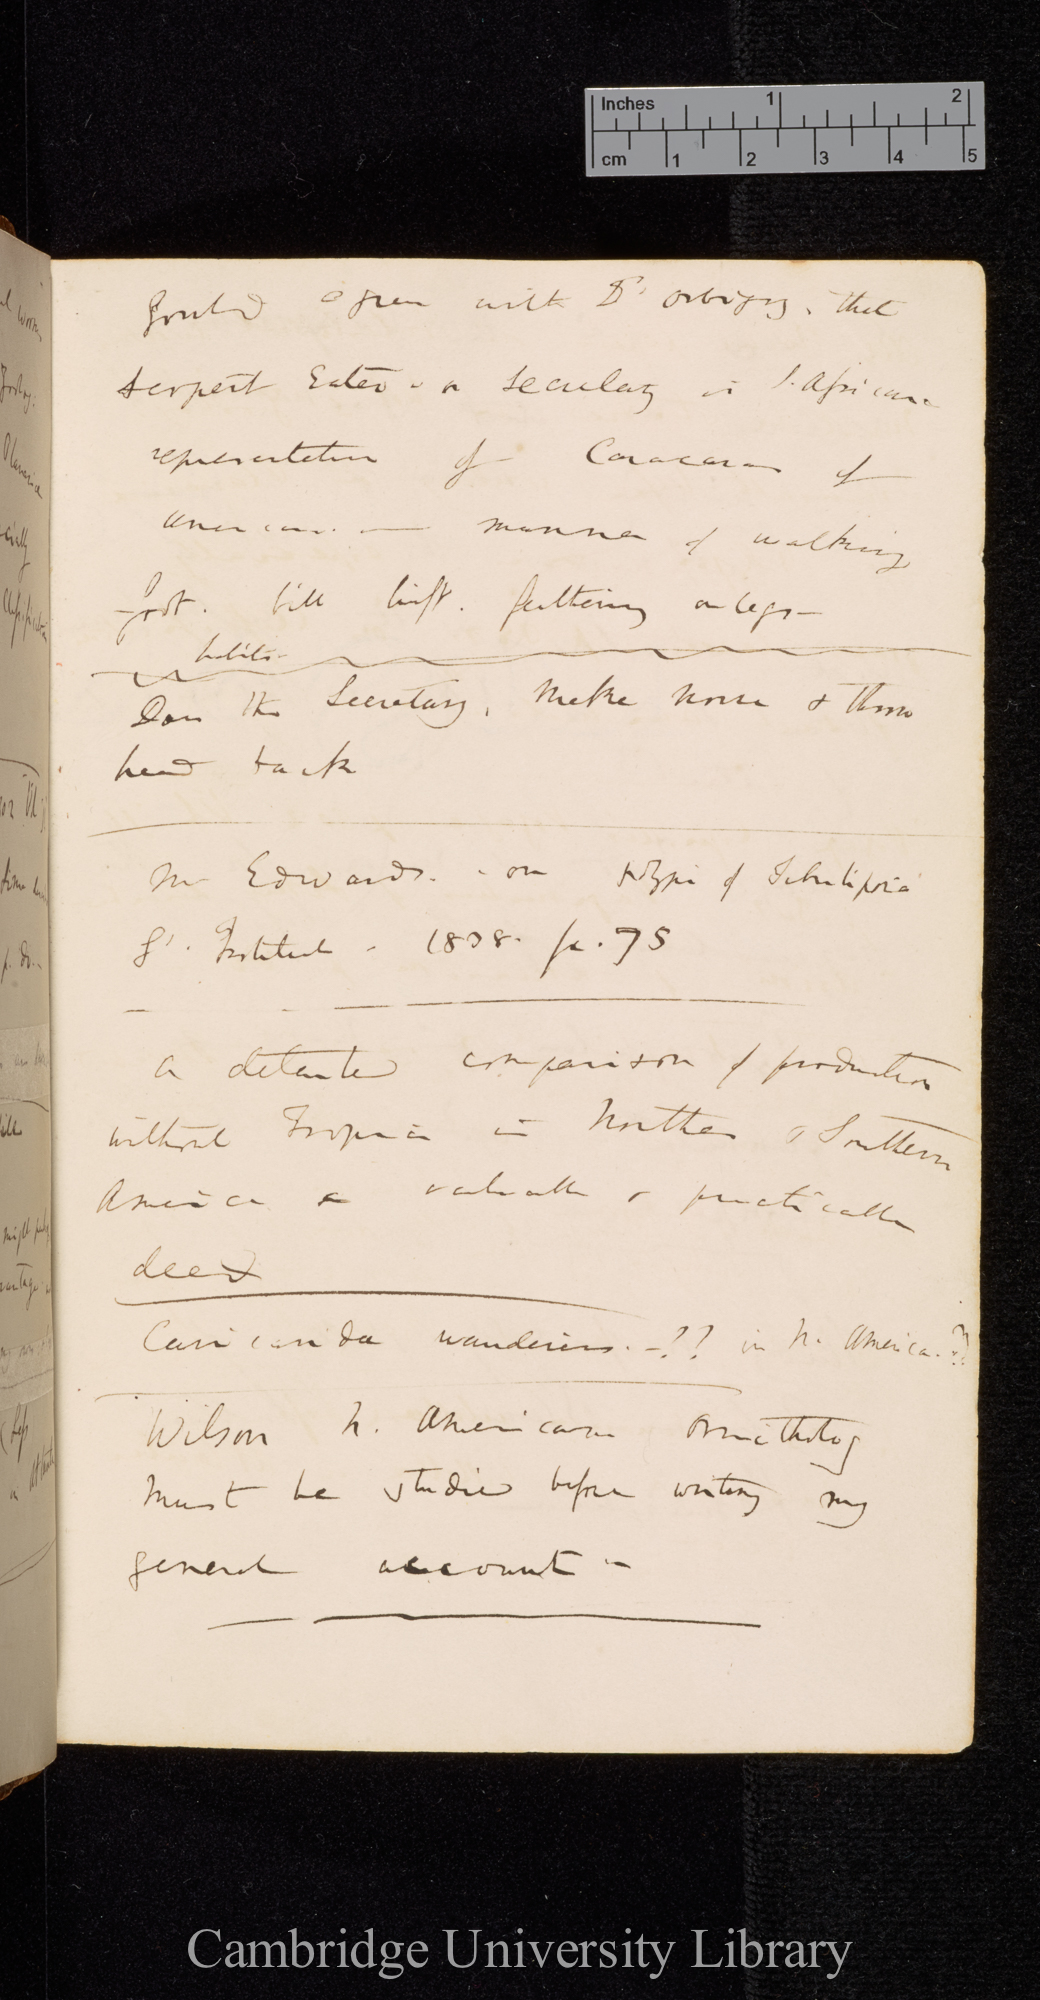 Inches 1 2
cm 1 2 3 4 5
Gould agrees with D'Orbigny, that
serpent Eater or Secretary is S. African
representative of Caracaras of
America. — manner of walking
foot. bill feathering on legs —
habits —
Does the Secretary, make noise & throw
head back
M. Edwards. on type of Tubulipora
L'Institut. 1838. p. 75
a detailed comparison of productions
without Tropics in Northern & Southern
America
Wilson N. American Ornitholog
must be studied before writing my
general account —
wanderers. —?? in N. America. ??
Cambridge University Library